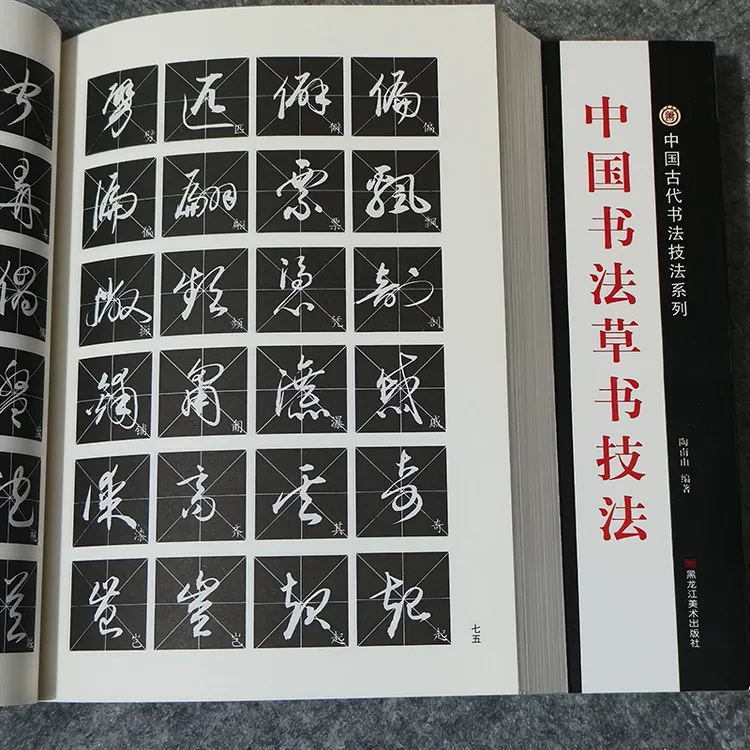 劈 匹 僻 偏
偏 翩 票 飘
撇 频 凭 剖
铺 瀑 戚
漆 齐 其 奇
岂 岂 起 起
七五
中国书法草书技法
中国古代书法技法系列
陶南山 编著
黑龙江美术出版社